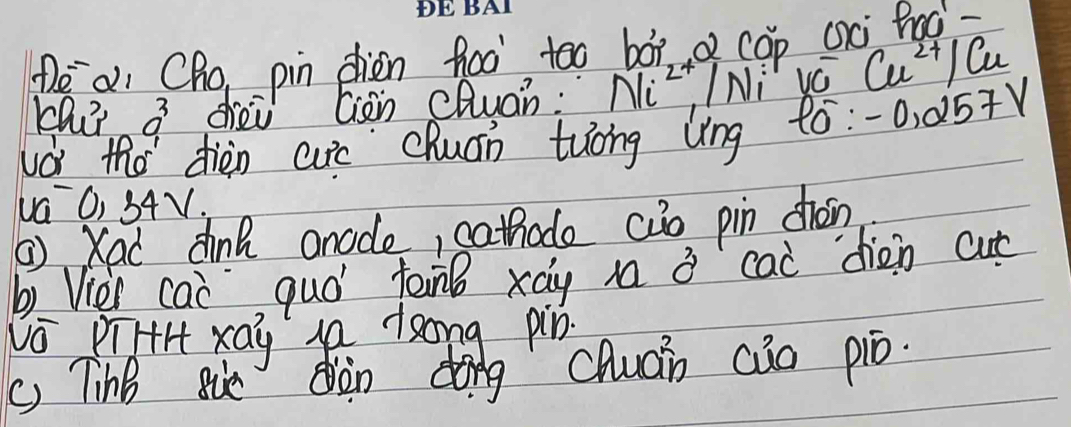 ĐỀ BÀI
Đề 2: Cho pin điện hoá tạo bởi 2 cặp oxi hoá -
khử ở điều kiện chuẩn: Ni²⁺/Ni và Cu²⁺/Cu
với thế điện cực chuẩn tương ứng là: -0,257V
và 0,34V.
a) Xác định anode, cathode của pin điện.
b) Viết các quá trình xảy ra ở các điện cực
và PTHH xảy ra trong pin.
c) Tính sức điện động chuẩn của pin.